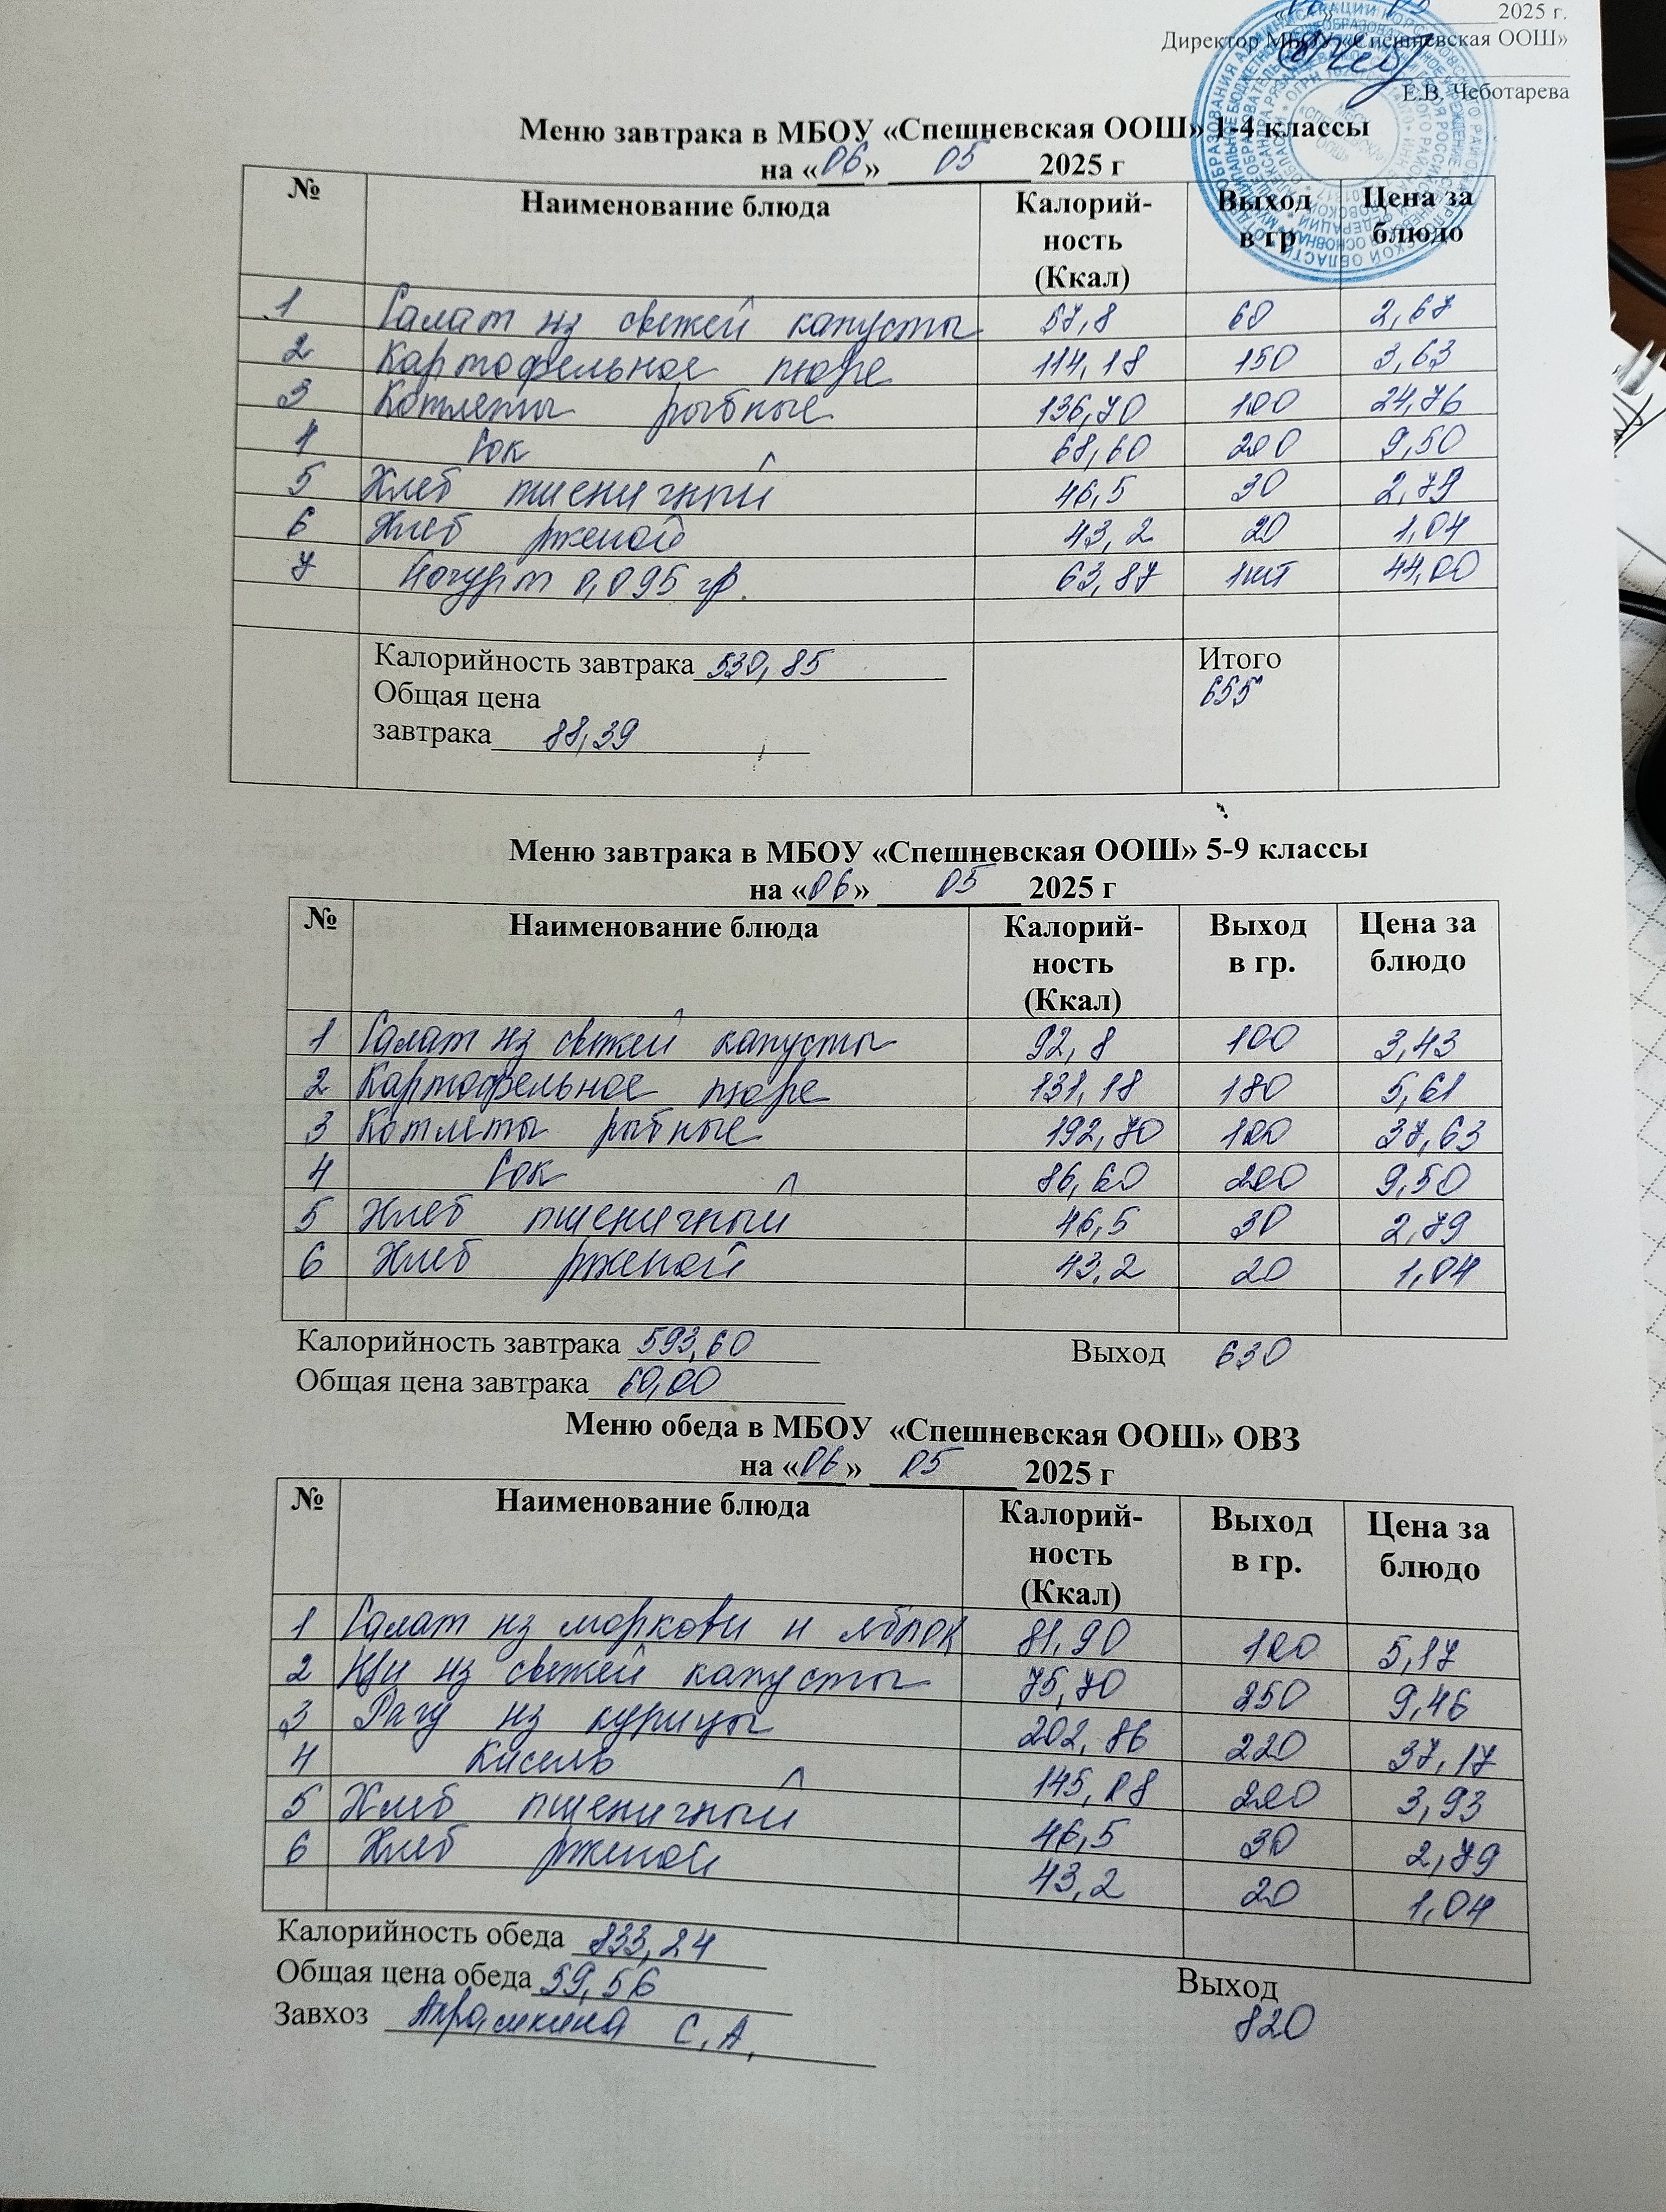 2025 г.
Директор МБОУ «Спешневская ООШ»
Е.В. Чеботарева
Меню завтрака в МБОУ «Спешневская ООШ» 1-4 классы
на «06» 05 2025 г
№ Наименование блюда Калорий-ность (Ккал) Выход в гр Цена за блюдо
1 Салат из свежей капусты 57,8 60 2,67
2 Картофельное пюре 114,18 150 3,63
3 Котлеты рыбные 136,70 100 24,76
4 Сок 68,60 200 9,50
5 Хлеб пшеничный 46,5 30 2,79
6 Хлеб ржаной 43,2 20 1,04
7 Йогурт 0,095 гр. 63,87 1шт 44,00
Калорийность завтрака 530,85 Итого
Общая цена 655
завтрака 88,39
Меню завтрака в МБОУ «Спешневская ООШ» 5-9 классы
на «06» 05 2025 г
№ Наименование блюда Калорий-ность (Ккал) Выход в гр. Цена за блюдо
1 Салат из свежей капусты 92,8 100 3,43
2 Картофельное пюре 131,18 180 5,61
3 Котлеты рыбные 192,70 100 37,63
4 Сок 86,60 200 9,50
5 Хлеб пшеничный 46,5 30 2,79
6 Хлеб ржаной 43,2 20 1,04
Калорийность завтрака 593,60 Выход 630
Общая цена завтрака 60,00
Меню обеда в МБОУ «Спешневская ООШ» ОВЗ
на «06» 05 2025 г
№ Наименование блюда Калорий-ность (Ккал) Выход в гр. Цена за блюдо
1 Салат из моркови и яблок 81,90 100 5,17
2 Щи из свежей капусты 75,70 250 9,46
3 Рагу из курицы 202,86 220 37,17
4 Кисель 145,08 200 3,93
5 Хлеб пшеничный 46,5 30 2,79
6 Хлеб ржаной 43,2 20 1,04
Калорийность обеда 833,24
Общая цена обеда 59,56 Выход
Завхоз С.А. 820